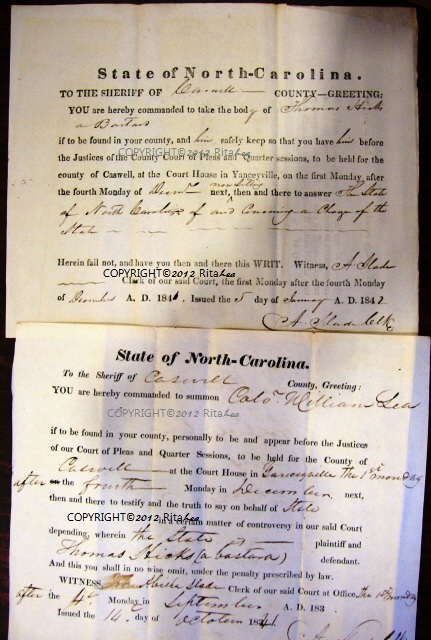 State of North-Carolina.
TO THE SHERIFF OF Caswell COUNTY—GREETING:
YOU are hereby commanded to take the body of Thomas Hicks
a Bastard
if to be found in your county, and him safely keep so that you have him before
COPYRIGHT©2012 RitaLea
the Justices of the County Court of Pleas and Quarter sessions, to be held for the
county of Caswell, at the Court House in Yanceyville, on the first Monday after
the fourth Monday of Decem next, now sitting then and there to answer The State
of North Carolina of and Concerning a Charge of the
State
Herein fail not, and have you then and there this WRIT. Witness, A Slade
COPYRIGHT©2012 RitaLea
Clerk of our said Court, the first Monday after the fourth Monday
of December A. D. 184 Issued the 5 day of January A. D. 1842
A. Slade Clk
State of North-Carolina.
To the Sheriff of Caswell County, Greeting:
YOU are hereby commanded to summon Colo. William Lea
COPYRIGHT©2012 RitaLea
if to be found in your county, personally to be and appear before the Justices
of our Court of Pleas and Quarter Sessions, to be held for the County of
Caswell at the Court House in Yanceyville the 1st monday
after the fourth Monday in December next,
then and there to testify and the truth to say on behalf of State
COPYRIGHT©2012 RitaLea
in a certain matter of controversy in our said Court
depending, wherein the State plaintiff and
Thomas Hicks (a bastard) defendant.
And this you shall in no wise omit, under the penalty prescribed by law.
WITNESS, Abisha Slade Clerk of our said Court at Office, the 1st monday
after the 4th Monday in September A. D. 183
Issued the 14 day of October 1841